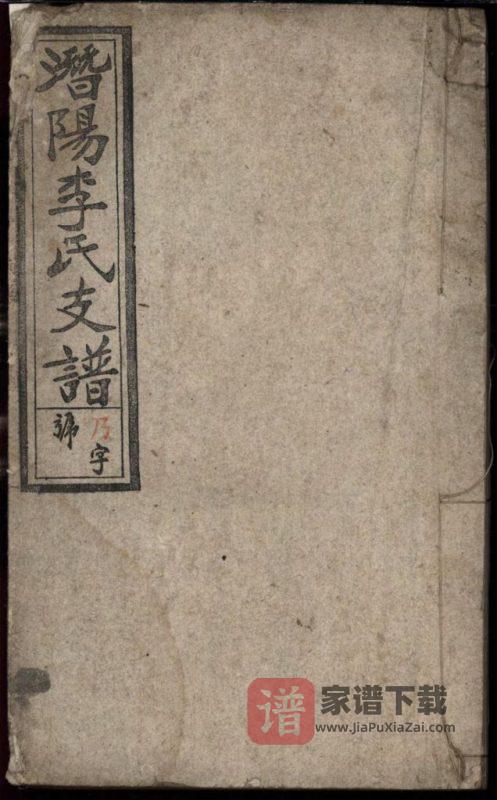 潛陽李氏支譜
乃字
號
谱
家谱下载
www.JiaPuXiaZai.com